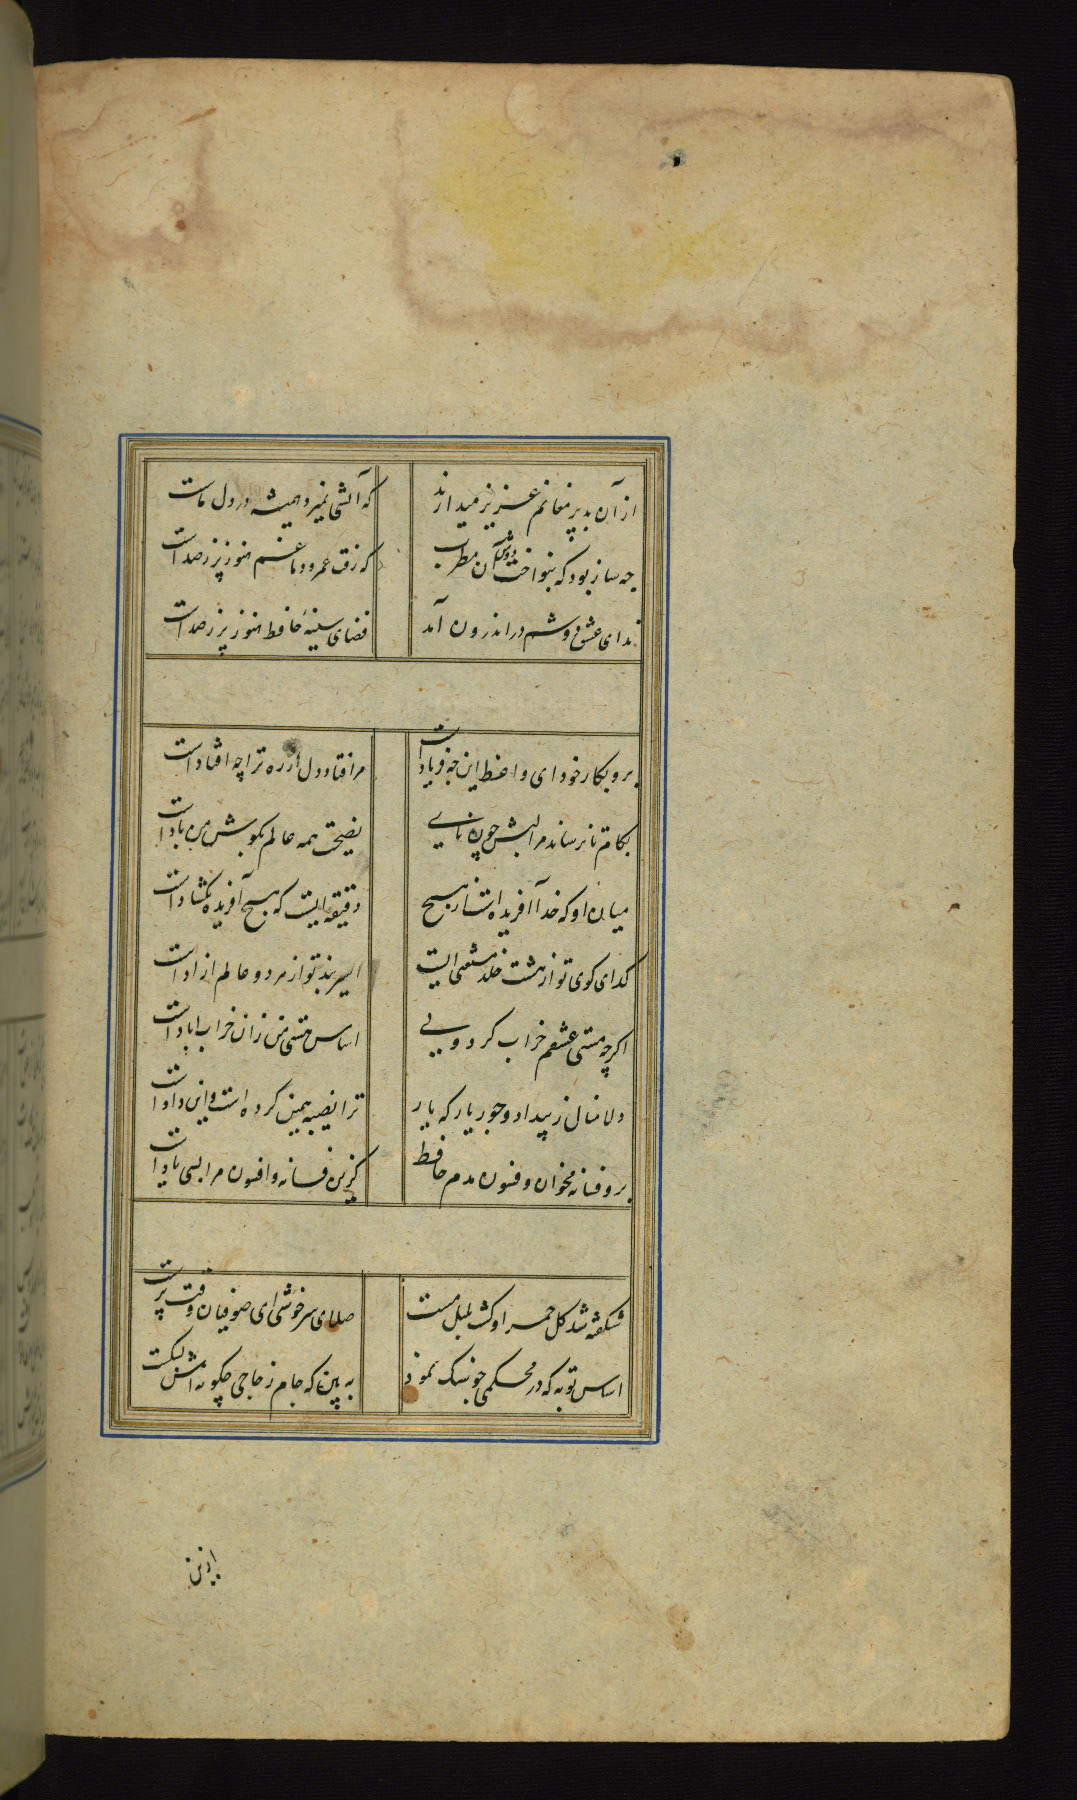 از آن بدیر مغانم عزیز میدارند که آتشی نمیرد همیشه در دل ماست
چه ساز بود که بنواخت دوش آن مطرب که رفت عمر و دماغم هنوز پر ز صداست
ندای عشق دوشم در اندرون آمد فضای سینهٔ حافظ هنوز پر ز صداست
برو بکار خود ای واعظ این چه فریاداست مرا فتاد دل از ره ترا چه افتاداست
بکام تا نرساند مرا لبش چون نای نصیحت همه عالم بگوش من باداست
میان او که خدا آفریده است از هیچ دقیقه ایست که هیچ آفریده نگشاداست
گدای کوی تو از هشت خلد مستغنی است اسیر بند تو از هر دو عالم ازاداست
اگرچه مستی عشقم خراب کرد ولی اساس هستی من زان خراب اباداست
دلا منال ز بیداد و جور یار که یار ترا نصیبه همین کرده است و این داداست
برو فسانه مخوان و فسون مدم حافظ کزین فسانه و افسون مرا بسی یاداست
شکفته شد گل حمرا و گشت بلبل مست صلای سرخوشی ای صوفیان وقت پرست
اساس توبه که در محکمی چو سنک نمود به بین که جام زجاجی چکونه اش بشکست